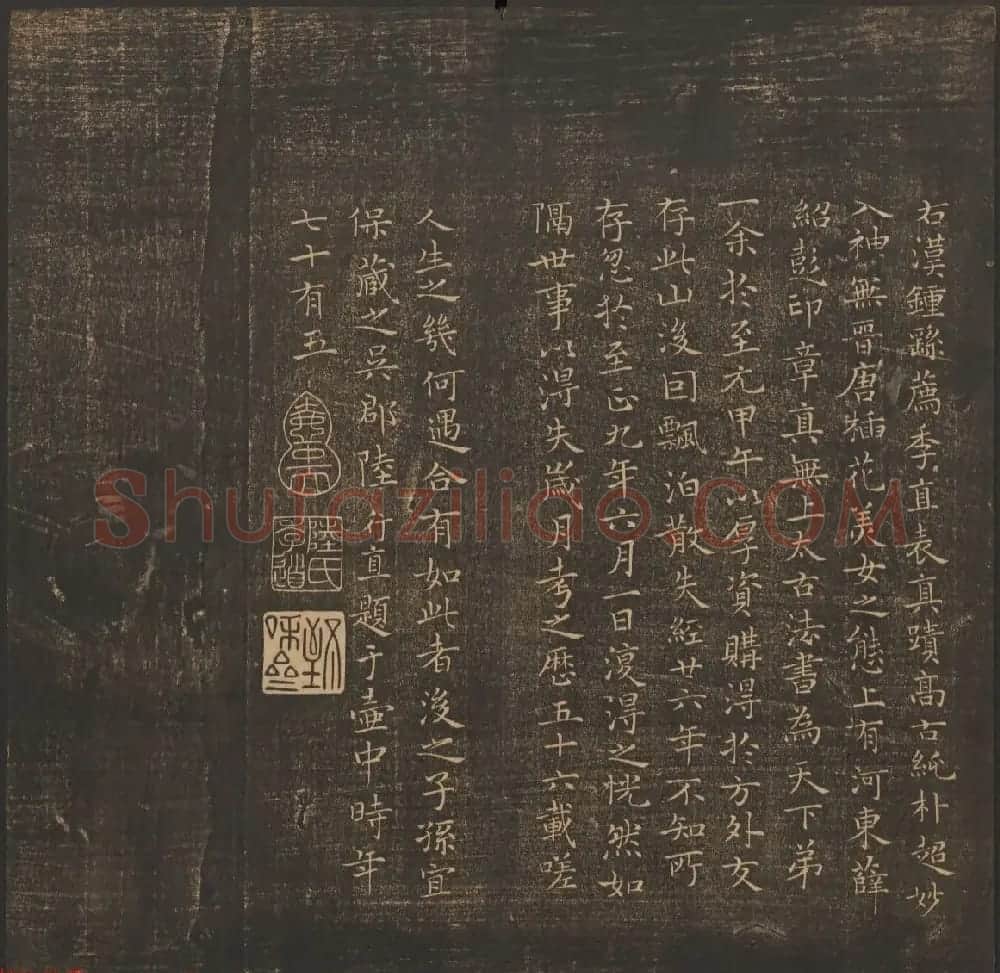 右漢鍾繇薦季直表真蹟高古純朴超妙
入神無晋唐插花美女之態上有河東薛
紹彭印章真無上太古法書為天下弟
一余於至元甲午以厚資購得於方外友
存此山後因飄泊散失經廿六年不知所
存忽於至正九年六月一日復得之恍然如
隔世事以得失歲月考之歷五十六載嗟
人生之幾何遇合有如此者後之子孫宜
保藏之吳郡陸行直題于壺中時年
七十有五
陸氏
Shufaziliao.COM